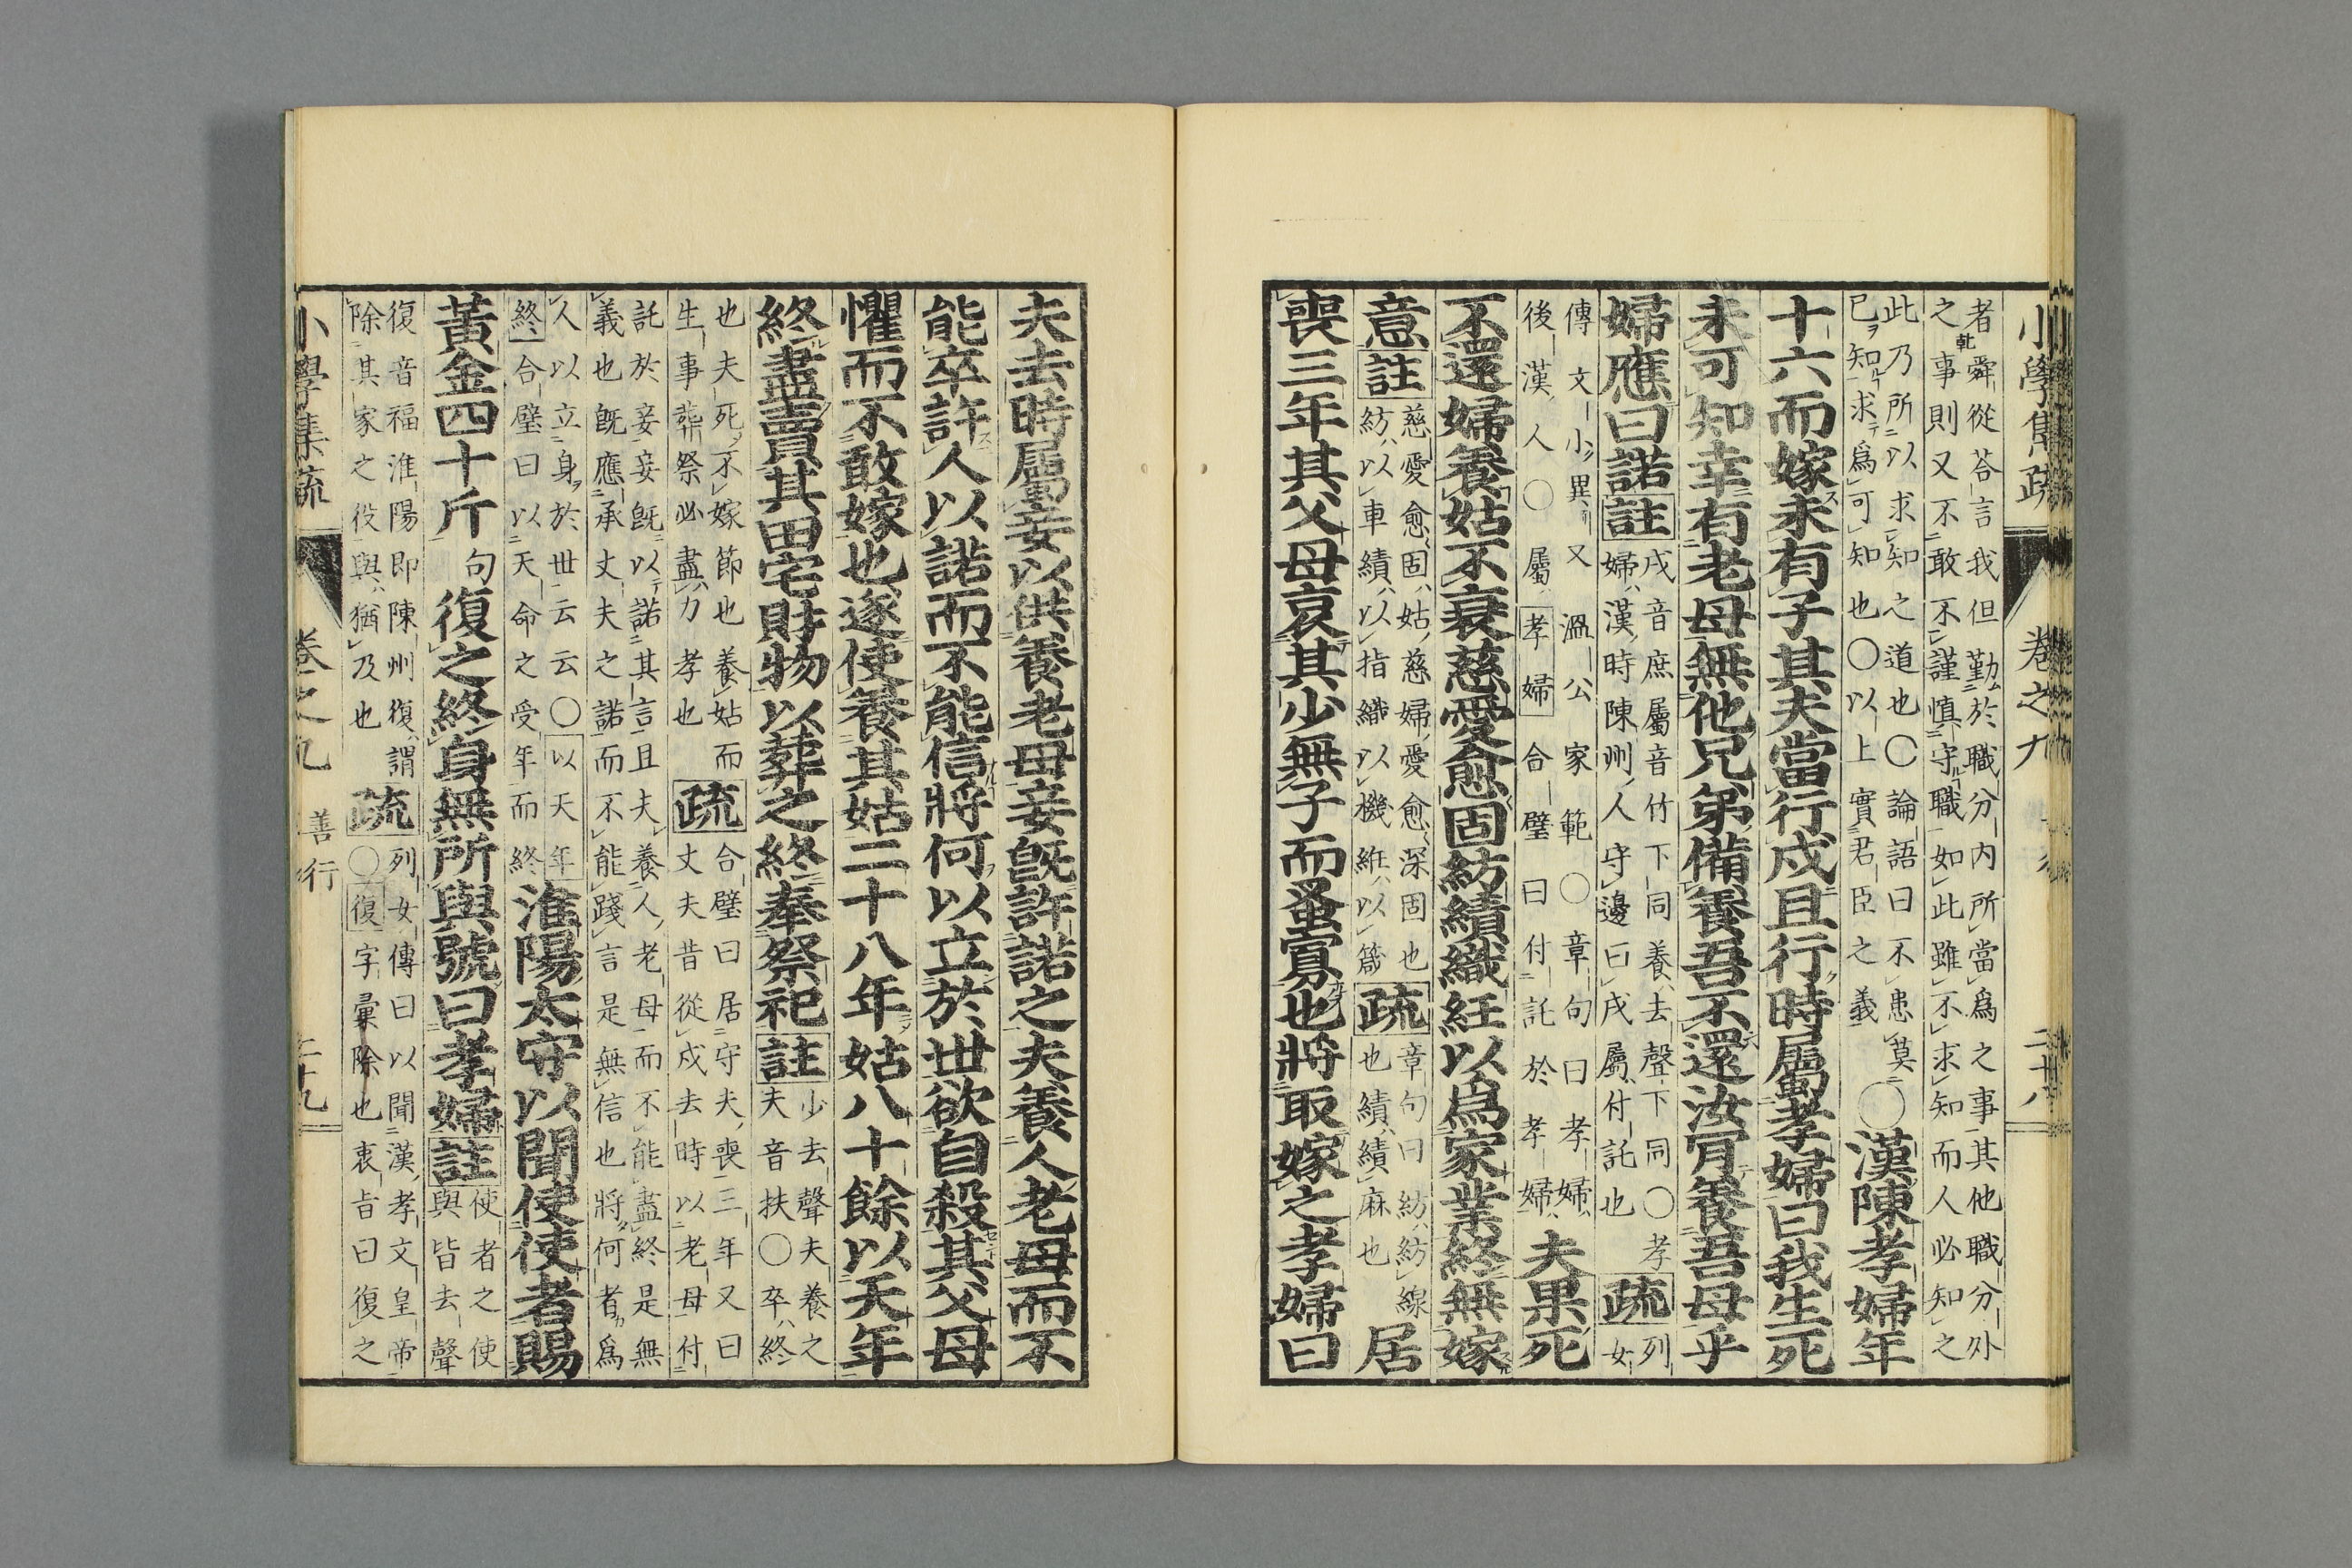 小學集疏 卷之九 二十八
者舜從荅言我但勤於職分内所當爲之事其他職分外
之事則又不敢不謹愼守職如此雖不求知而人必知之
此乃所以求知之道也〇論語曰不患莫
己知求爲可知也〇以上實君臣之義
〇漢陳孝婦年
十六而嫁未有子其夫當行戍且行時屬孝婦曰我生死
未可知幸有老母無他兄弟備養吾不還汝肯養吾母乎
婦應曰諾註
戍音庶屬音竹下同養去聲下同〇孝
婦漢時陳州人守邊曰戍屬付託也
疏
列女
傳文小異又溫公家範〇章句曰孝婦
後漢人〇屬孝婦合璧曰付託於孝婦
夫果死
不還婦養姑不衰慈愛愈固紡績織紝以爲家業終無嫁
意註
慈愛愈固姑慈婦愛愈深固也
紡以車績以指織以機紝以箴
疏
章句曰紡紡線
也績績麻也
居
喪三年其父母哀其少無子而蚤寡也將取嫁之孝婦曰
夫去時屬妾以供養老母妾旣許諾之夫養人老母而不
能卒許人以諾而不能信將何以立於世欲自殺其父母
懼而不敢嫁也遂使養其姑二十八年姑八十餘以天年
終盡賣其田宅財物以葬之終奉祭祀註
少去聲夫養之
夫音扶〇卒終
也夫死不嫁節也養姑而
生事葬祭必盡力孝也
疏
合璧曰居守夫喪三年又曰
丈夫昔從戍去時以老母付
託於妾妾旣以諾其言且夫養人老母而不能盡終是無
義也旣應承丈夫之諾而不能踐言是無信也將何者爲
人以立身於世云云〇以天年
終合璧曰以天命之受年而終
淮陽太守以聞使使者賜
黃金四十斤句復之終身無所與號曰孝婦註
使者之使
與皆去聲
復音福淮陽即陳州復謂
除其家之役與猶及也
疏
列女傳曰以聞漢孝文皇帝
〇復字彙除也衷旨曰復之
小學集疏 卷之九 善行 二十九